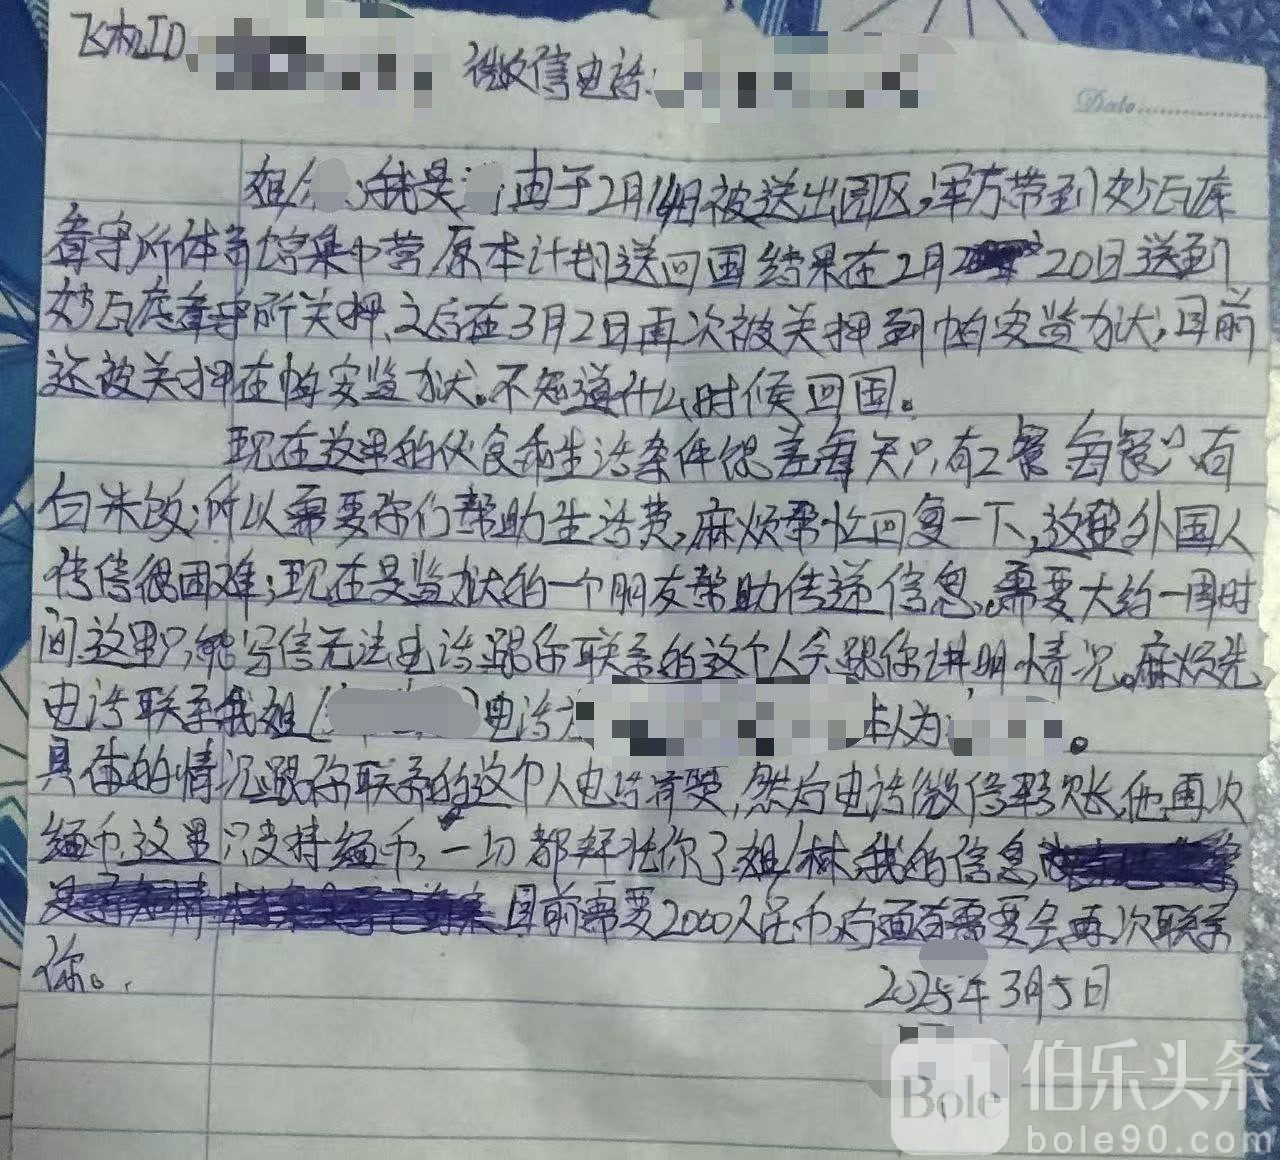 飞机ID 微信电话:
Date
姐/ ,我是 ,由于2月14日被送出园区,军方带到妙瓦底
看守所体育场集中营原本计划送回国结果在2月 20日送到
妙瓦底看守所关押,之后在3月2日再次被关押到帕安监狱,目前
还被关押在帕安监狱。不知道什么时候回国。
现在这里的伙食和生活条件很差每天只有2餐 每餐只有
白米饭,所以需要你们帮助生活费,麻烦帮忙回复一下,这 外国人
传信很困难;现在是监狱的一个朋友帮助传递信息,需要大约一周时
间,这里只能写信无法电话,跟你联系的这个人会跟你讲明情况。麻烦先
电话联系我姐( )电话 人为: 。
具体的情况跟你联系的这个人电话 ,然后电话/微信转账,他再
缅币,这里只支持缅币,一切都拜托你了姐/林,我的信息,
目前需要2000人民币,后面有需要会再次联系
你。
2025年3月5日
Bole
伯乐头条
bole90.com